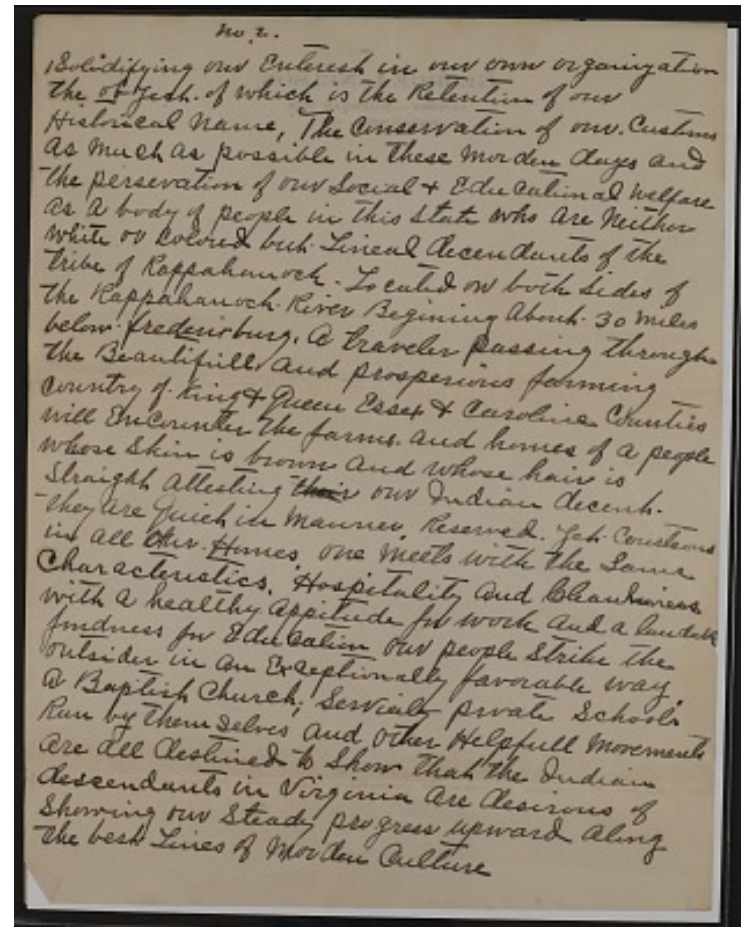 No. 2.
Solidifying our Enterest in our own organization
the of which is the Retention of our
Historical Name, The Conservation of our Customs
as much as possible in these Morden days and
the persevation of our Social & Educational Welfare
as a body of people in this State who are Neither
white or Colored but Lineal decendants of the
tribe of Rappahanock. Located on both sides of
the Rappahanock River Begining About 30 miles
below fredericsburg. A traveler passing through
the Beautifull and prosperious farming
country of King & Queen Essex & Caroline Counties
will Encounter the farms and homes of a people
whose Skin is brown and whose hair is
Straight attesting our Indian decent.
they are Quiet in Manner, Reserved. Yet Courteous
in all Our Homes one meets with the Same
Characteristics. Hospitality and Cleanliness
with a healthy appitude for work and a laudable
fondness for Education our people Strike the
outsider in an Exceptionally favorable way.
a Baptist Church, private Schools
Run by them selves and other Helpfull Movements
are all destined to Show that the Indian
descendants in Virginia are desirous of
Showing our Steady progress upward along
the best Lines of Morden Culture